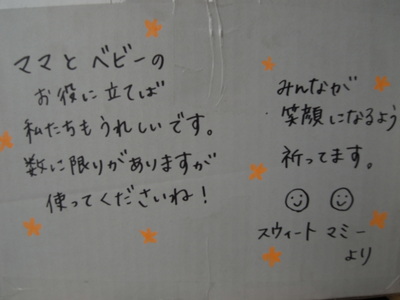 ママと ベビーの
お役に立てば
私たちもうれしいです。
数に限りがありますが
使ってくださいね!
みんなが
笑顔になるよう
祈ってます。
スウィート マミー
より